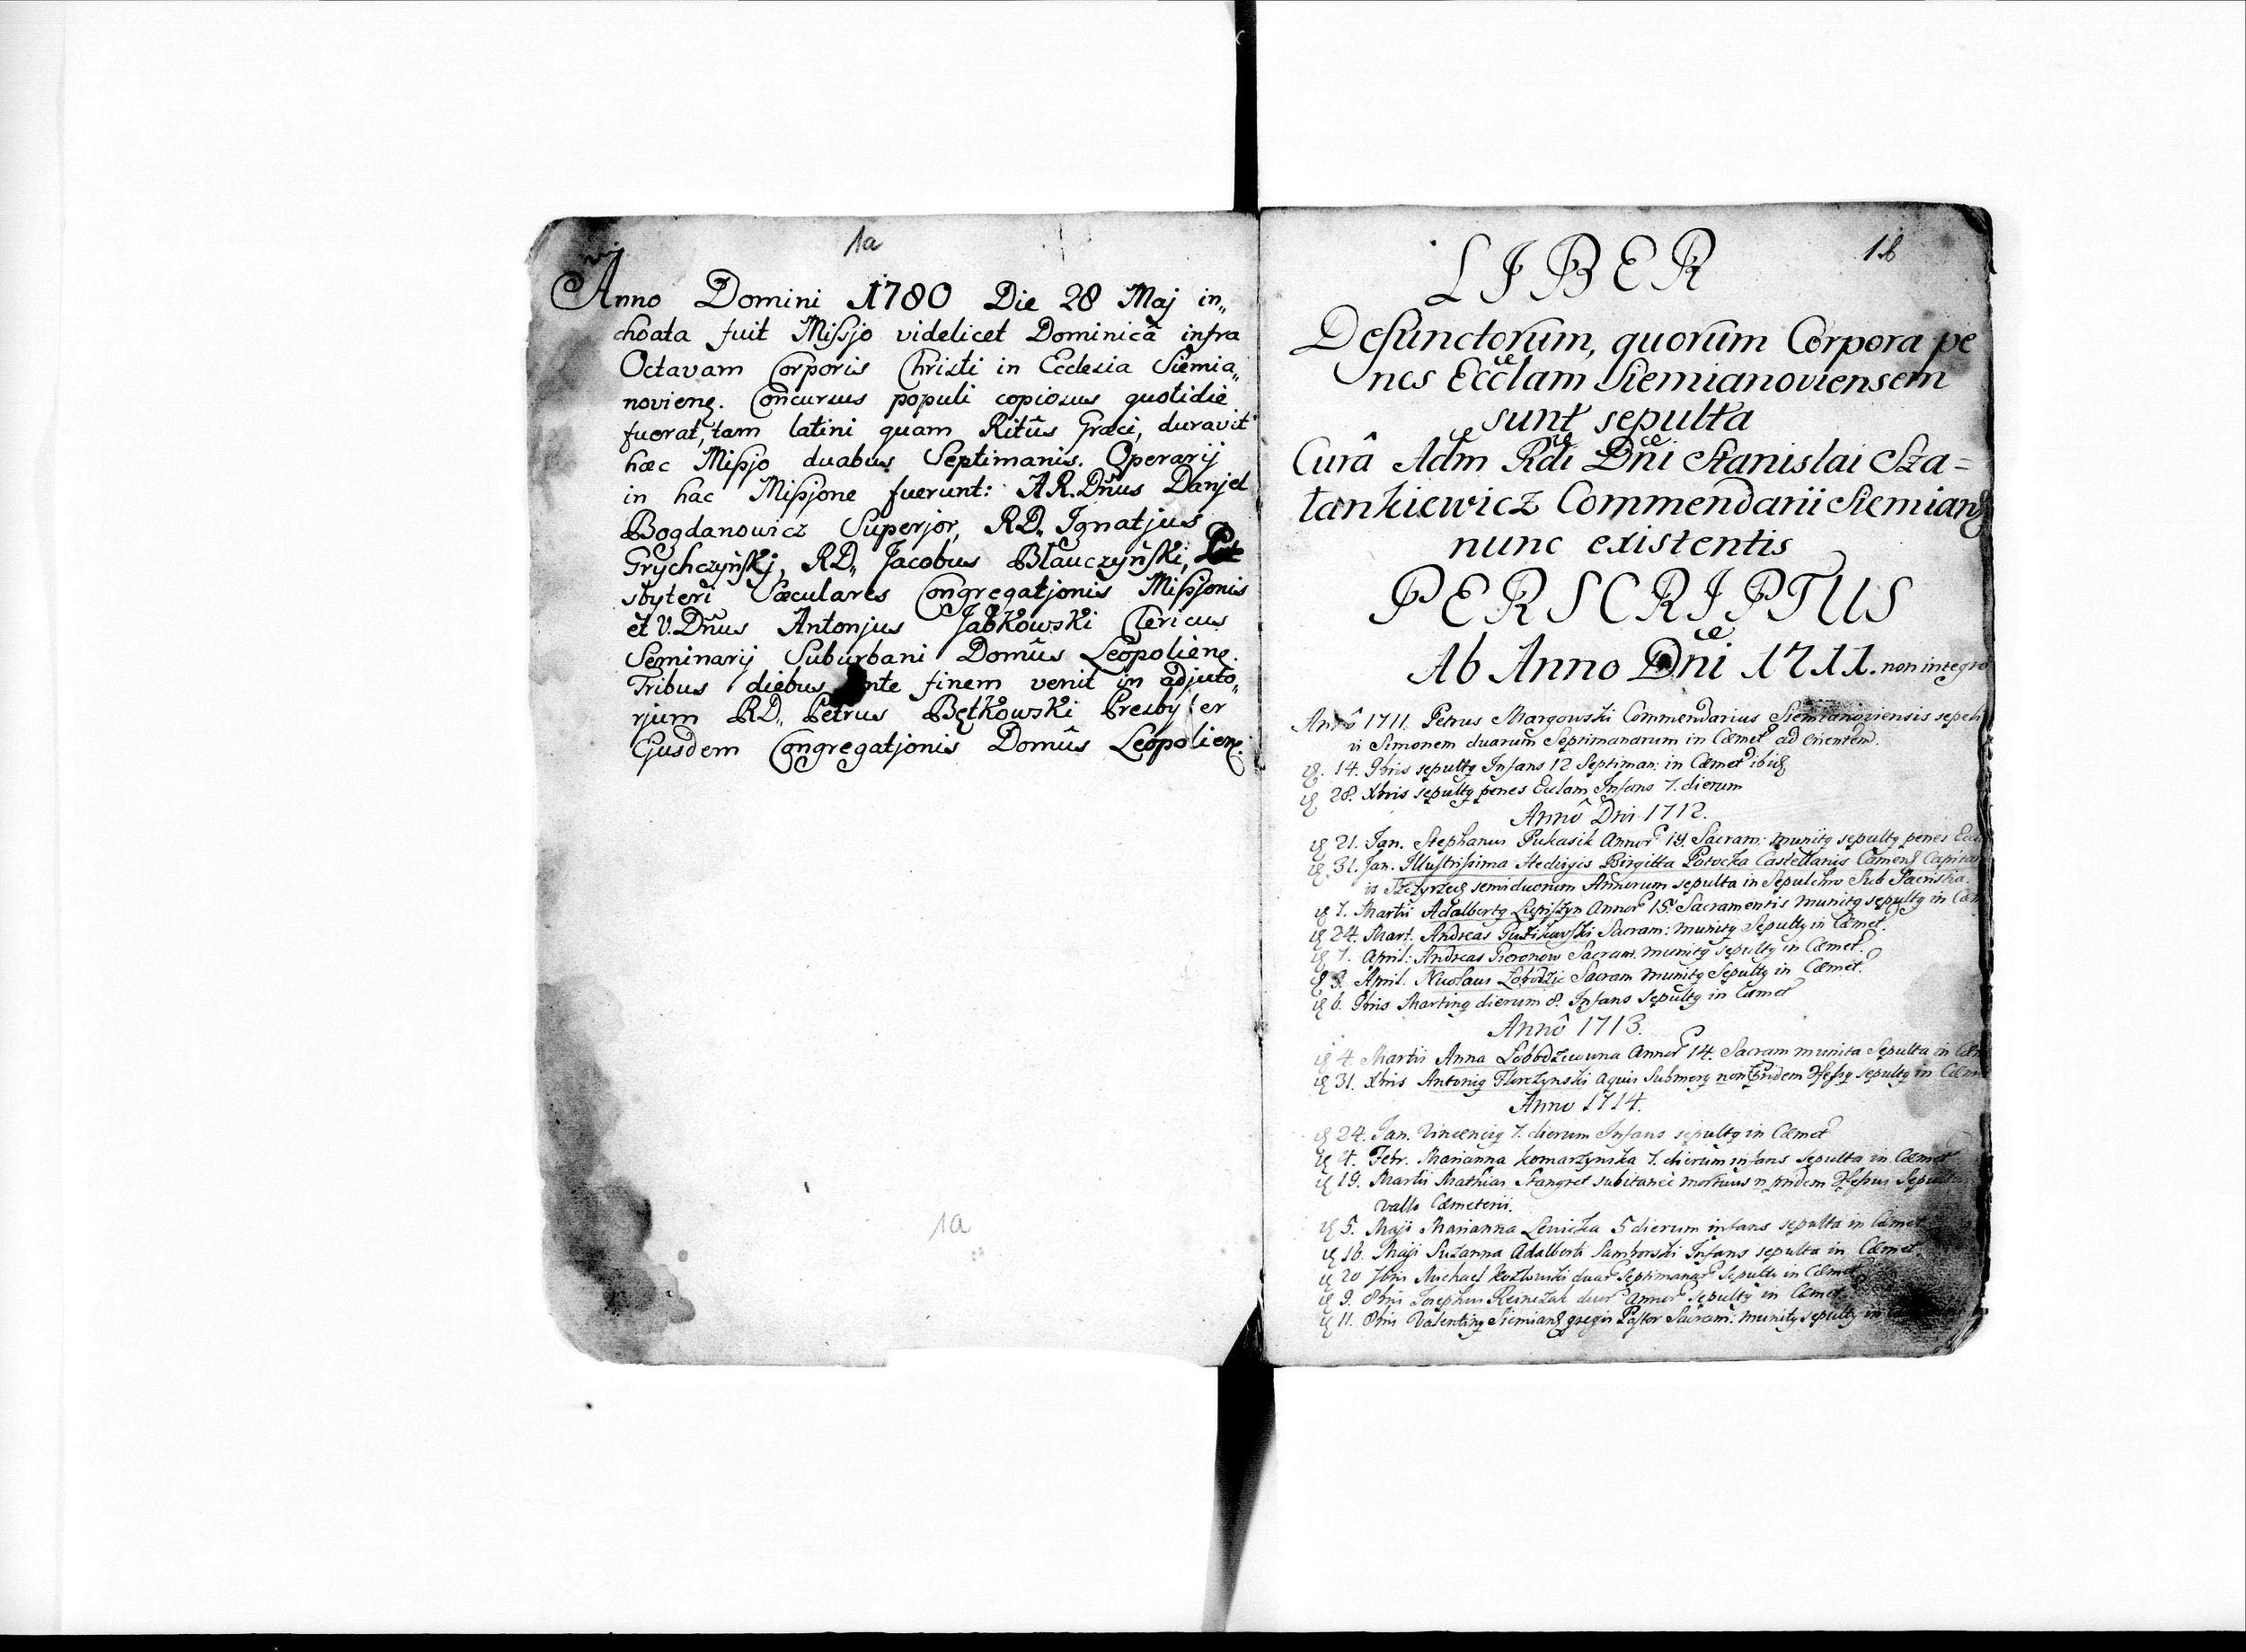 1a
Anno Domini 1780 Die 28 Maj in„
choata fuit Mißjo videlicet Dominicâ infra
Octavam Corporis Christi in Ecclesia Siemia„
noviens. Concursus populi copiosus quotidie
fuerat, tam latini quam Ritûs Græci, duravit
hæc Mißjo duabus Septimanis. Operarij
in hac Mißjone fuerunt: A.R. Dñus Danjel
Bogdanowicz Superjor, RD„ Ignatjus
Grychczyński, RD„ Jacobus Blauczyński,
sbyteri Sæculares Congregatjonis Mißjonis
et V. Dñus Antonjus Jabkowski Clericus
Seminarij Suburbani Domûs Leopoliens.
Tribus diebus ante finem venit in adjuto„
rjum RD„ Petrus Bętkowski Presbyter
Ejusdem Congregatjonis Domûs Leopoliens.
1a
1b
LIBER
Defunctorum, quorum Corpora pe
nes Eccłam Siemianoviensem
sunt sepulta
Curâ Adm Rdi Dñi Stanislai Sza=
tankiewicz Commendarii Siemians
nunc existentis
PERSCRIPTUS
Ab Anno Dñi 1711. non integro
Annô 1711. Petrus Margowski Commendarius Siemianoviensis sepeli
vi Simonem duarum Septimanarum in Cæmet ad Orientem.
14. 9bris sepultq Infans 12 Septiman: in Cæmet
28. Xbris sepultq penes Eculam Infans 7. dierum
Annô Dni 1712.
21. Jan. Stephanus Pukasik Annor 19. Sacram: munitq sepultq penes
31. Jan. Illustrißima Hedvigis Birgitta Potocka Castellanis Camens
semiduorum Annorum sepulta in Sepulchro Sub Sacristia.
7. Martii Adalbertq Annor 15. Sacramentis munitq sepultq in
24. Mart. Andreas Sacram: munitq Sepultq in Cæmet.
7. April: Andreas Pieronow Sacram. munitq sepultq in Cæmet.
3. April. Nicolaus Sacram munitq Sepultq in Cæmet.
6. 9bris Martinq dierum 8. Infans sepultq in Cæmet
Annô 1713.
4. Martii Anna Annor 14. Sacram munita Sepulta in
31. Xbris Antoniq aquis Submerq non pridem sepultq in
Anno 1714.
24. Jan. Vincentiq 7. dierum Infans sepultq in Cæmet
4. Febr. Marianna Komarzynska 7. dierum infans sepulta in Cæmet
19. Martii Mathias Stangret subitanei mortuus n pridem
vallo Cæmeterii.
5. Maji Marianna Lenicka 5 dierum infans sepulta in Cæmet
16. Maji Suzanna Adalberti Samborski Infans sepulta in Cæmet.
20 7bris Michael Kozlowski duar Septimanar Sepultq in Cæmet
9. 8bris Josephus duor Annor sepultq in Cæmet.
11. 8bris Valentinq Siemians gregis Pastor Sacram: munitq sepultq in